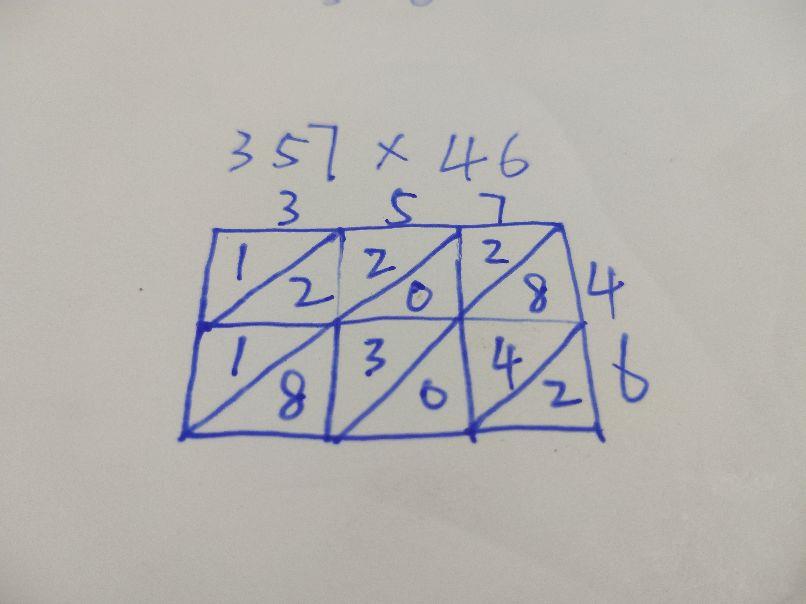 357 × 46
3 5 7
1 2 2 0 2 8 4
1 8 3 0 4 2 6